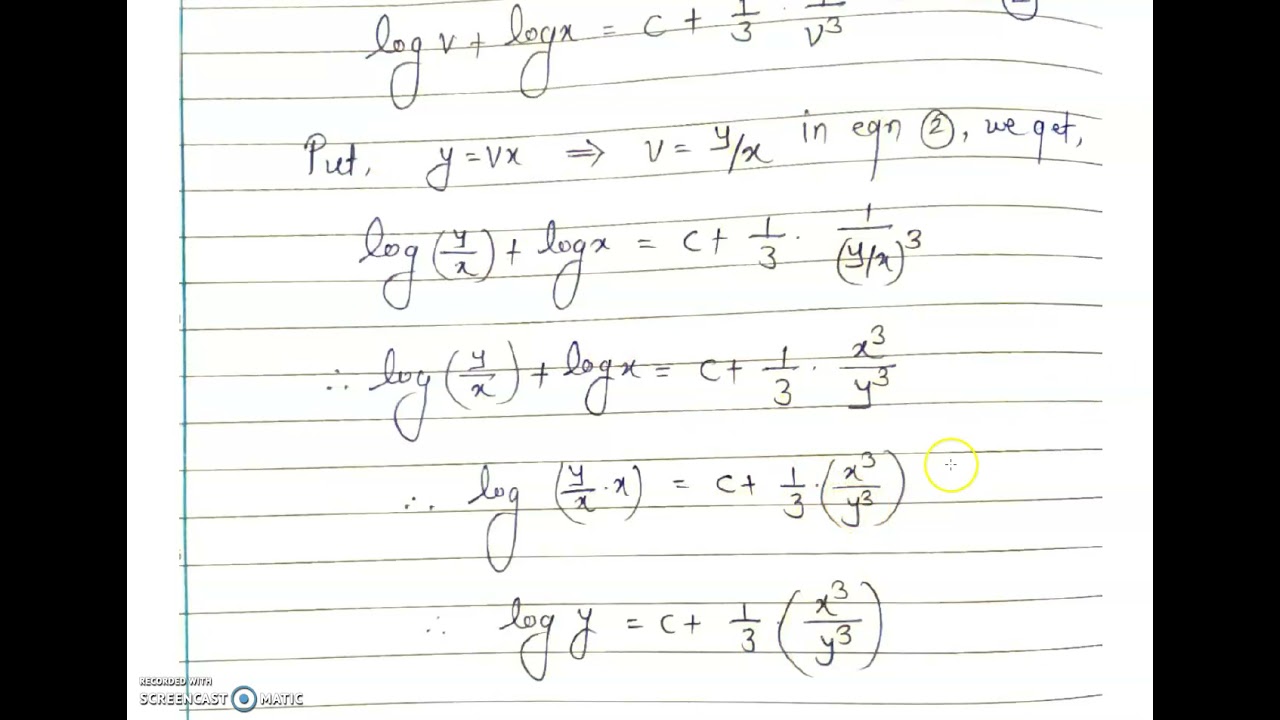 log v + log x = c + 1/3 · 1/v³ ②
Put, y = vx ⇒ v = y/x in eqn ②, we get,
log (y/x) + log x = c + 1/3 · 1/(y/x)³
∴ log (y/x) + log x = c + 1/3 · x³/y³
∴ log (y/x · x) = c + 1/3 · (x³/y³)
∴ log y = c + 1/3 · (x³/y³)
RECORDED WITH
SCREENCAST MATIC